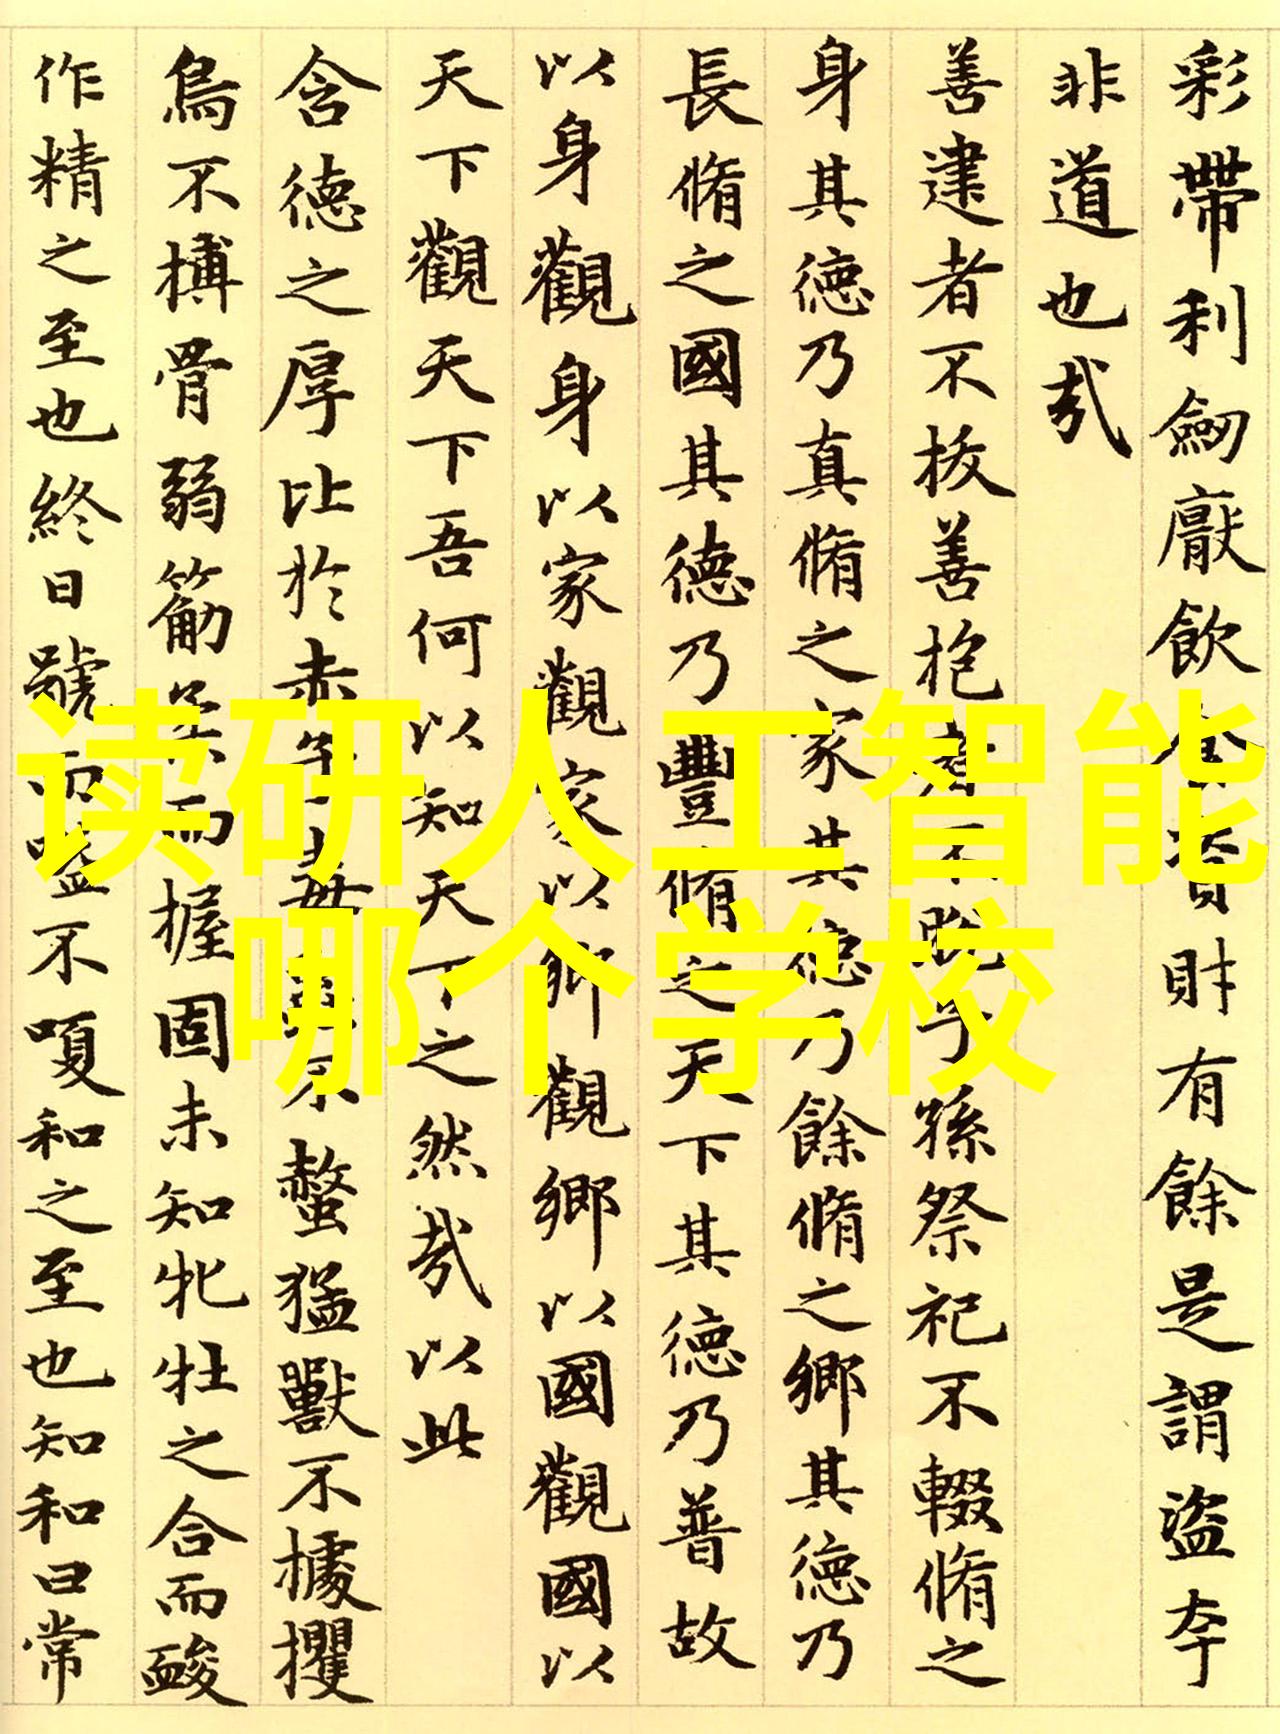 彩帶利劒厭飲食資財有餘是謂盗夸
非道也哉
善建者不拔善抱者不脫子孫祭祀不輟脩之
身其德乃真脩之家其德乃餘脩之鄉其德乃
長脩之國其德乃豐脩之天下其德乃普故
以身觀身以家觀家以鄉觀鄉以國觀國以
天下觀天下吾何以知天下之然哉以此
含德之厚比於赤子毒蟲不螫猛獸不據攫
鳥不搏骨弱筋柔而握固未知牝牡之合而酸
作精之至也終日號而嗌不嗄和之至也知和曰常
读研人工智能
哪个学校